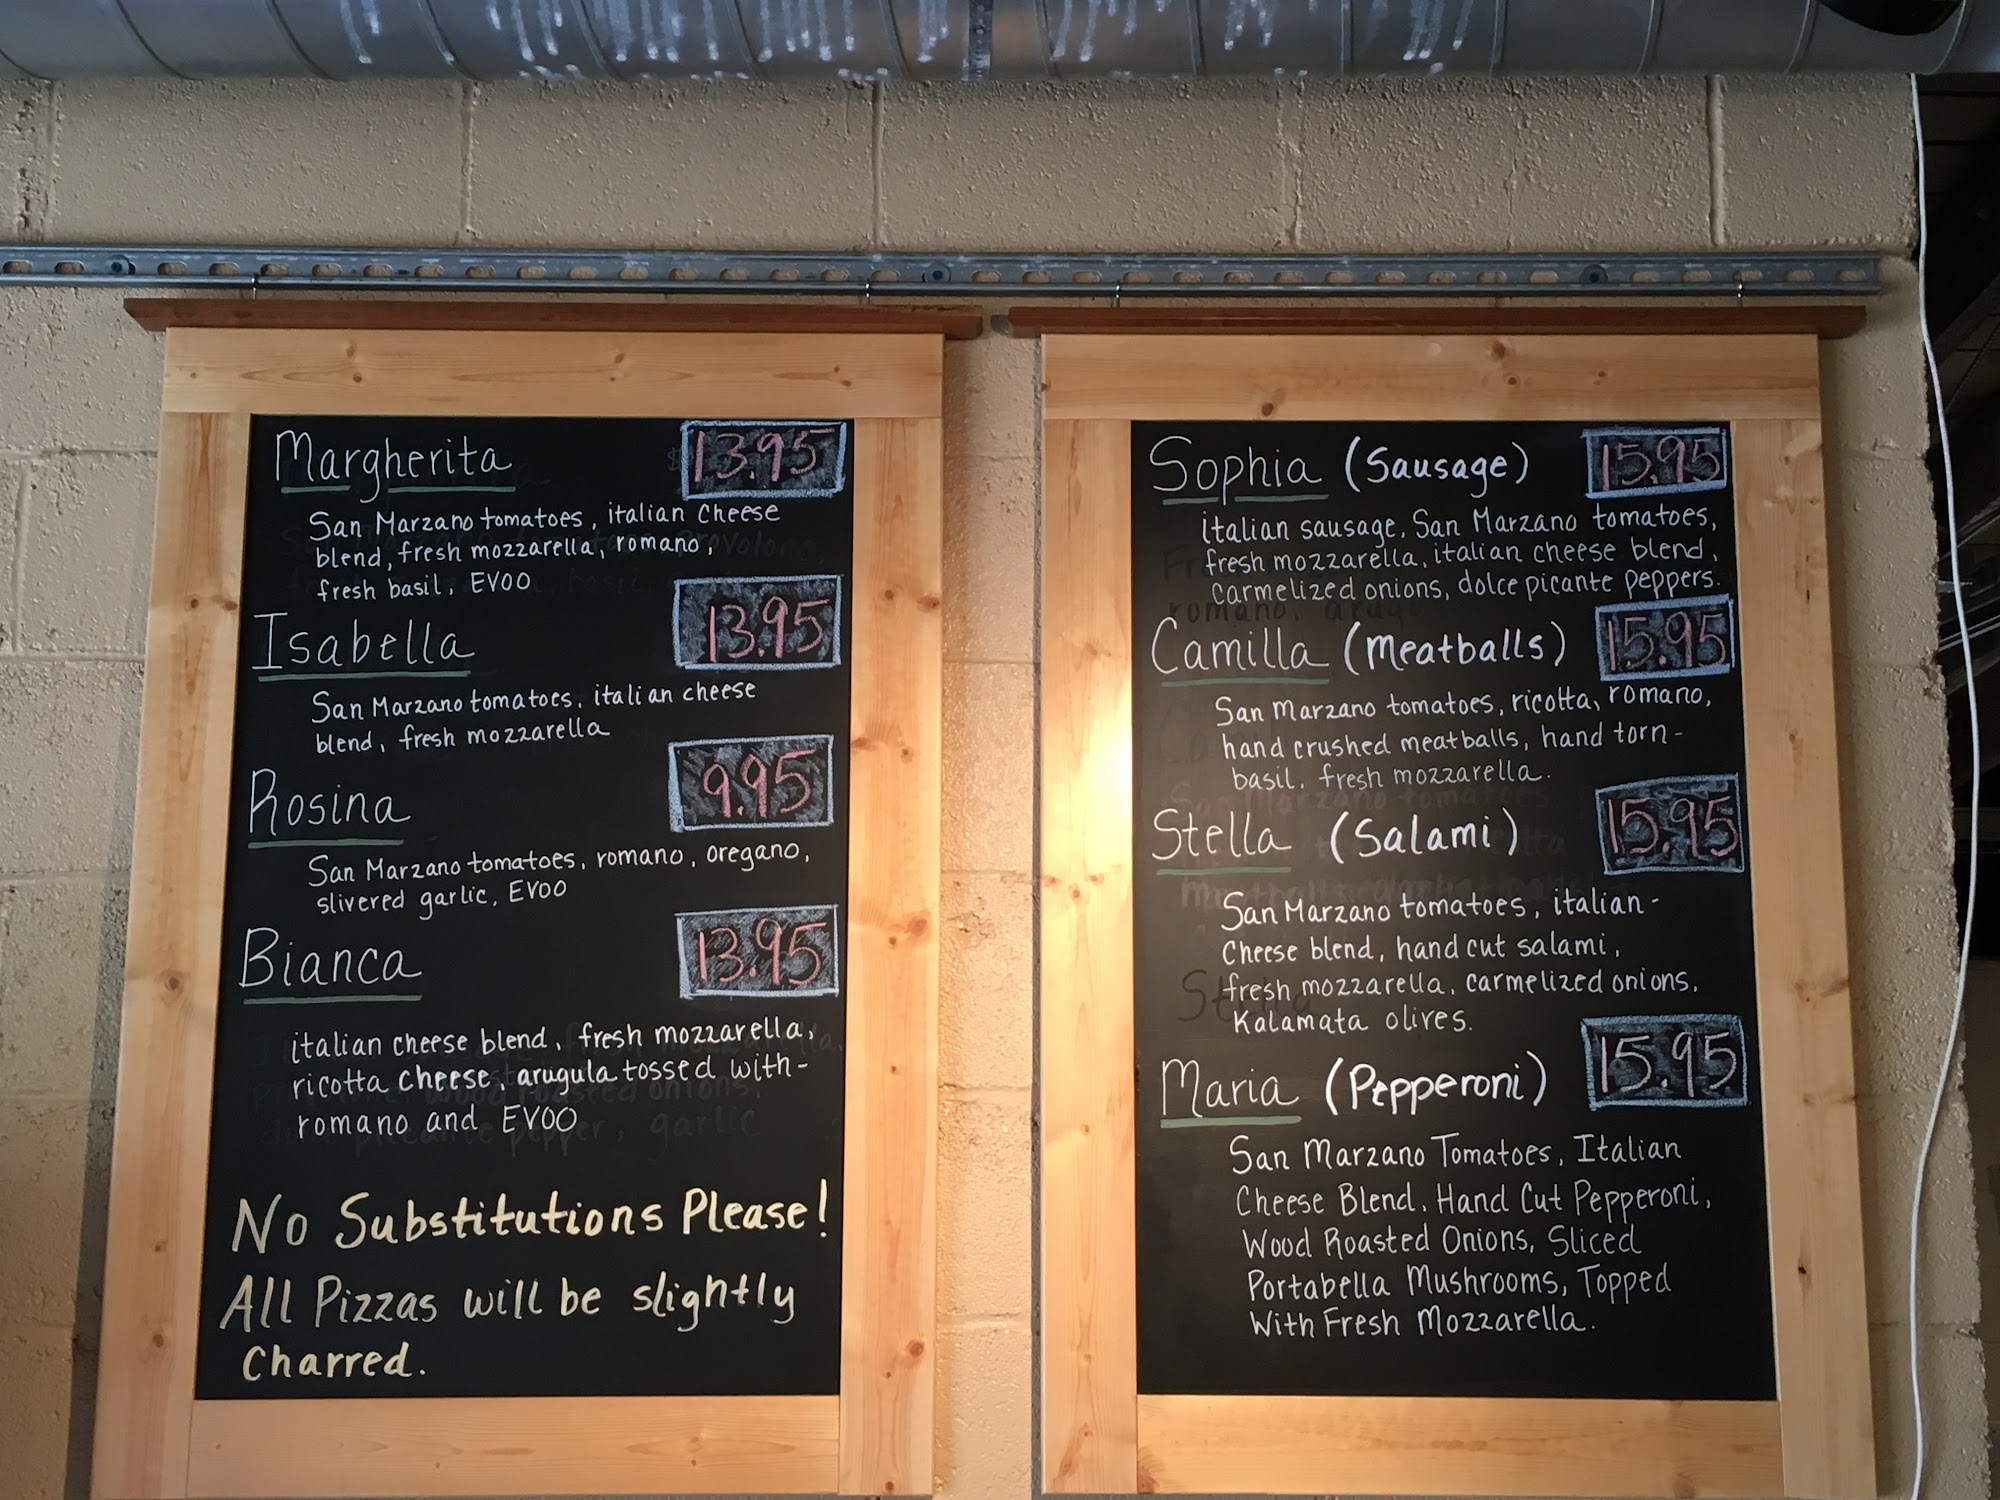 Margherita 13.95
San Marzano tomatoes, italian cheese
blend, fresh mozzarella, romano,
fresh basil, EVOO
Isabella 13.95
San Marzano tomatoes, italian cheese
blend, fresh mozzarella
Rosina 9.95
San Marzano tomatoes, romano, oregano,
slivered garlic, EVOO
Bianca 13.95
italian cheese blend, fresh mozzarella,
ricotta cheese, arugula tossed with-
romano and EVOO
No Substitutions Please!
All Pizzas will be slightly
Charred.
Sophia (Sausage) 15.95
italian sausage, San Marzano tomatoes,
fresh mozzarella, italian cheese blend,
carmelized onions, dolce picante peppers.
Camilla (Meatballs) 15.95
San Marzano tomatoes, ricotta, romano,
hand crushed meatballs, hand torn-
basil, fresh mozzarella.
Stella (Salami) 15.95
San Marzano tomatoes, italian-
Cheese blend, hand cut salami,
fresh mozzarella, carmelized onions,
Kalamata olives.
Maria (Pepperoni) 15.95
San Marzano Tomatoes, Italian
Cheese Blend, Hand Cut Pepperoni,
Wood Roasted Onions, Sliced
Portabella Mushrooms, Topped
With Fresh Mozzarella.